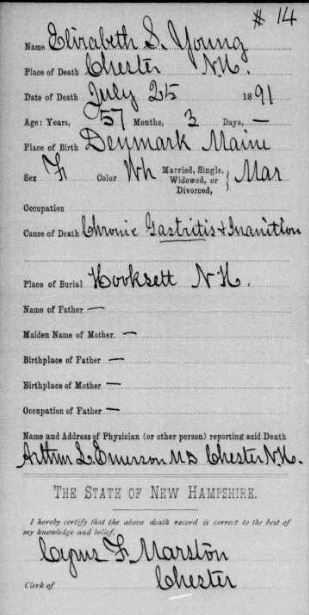 # 14
Name Elizabeth S. Young
Place of Death Chester N.H.
Date of Death July 25 1891
Age: Years, 57 Months, 3 Days, —
Place of Birth Denmark Maine
Sex F Color Wh Married, Single, Widowed, or Divorced, } Mar
Occupation
Cause of Death Chronic Gastritis & Inanition
Place of Burial Hooksett N.H.
Name of Father —
Maiden Name of Mother. —
Birthplace of Father —
Birthplace of Mother —
Occupation of Father —
Name and Address of Physician (or other person) reporting said Death
Arthur L. Emerson MD Chester N.H.
THE STATE OF NEW HAMPSHIRE.
I hereby certify that the above death record is correct to the best of
my knowledge and belief.
Cyrus F. Marston
Clerk of Chester